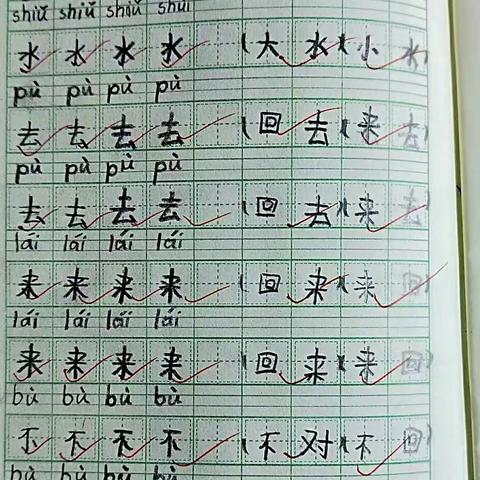 shuǐ shuǐ shuǐ shuǐ
水 水 水 水 (大 水)(小 水)
pù pù pù pù
去 去 去 去 (回 去)(来 去)
pù pù pù pù
去 去 去 去 (回 去)(来 去)
lái lái lái lái
来 来 来 来 (回 来)(来 回)
lái lái lái lái
来 来 来 来 (回 来)(来 回)
bù bù bù bù
不 不 不 不 (不 对)(不 回)
bù bù bù bù